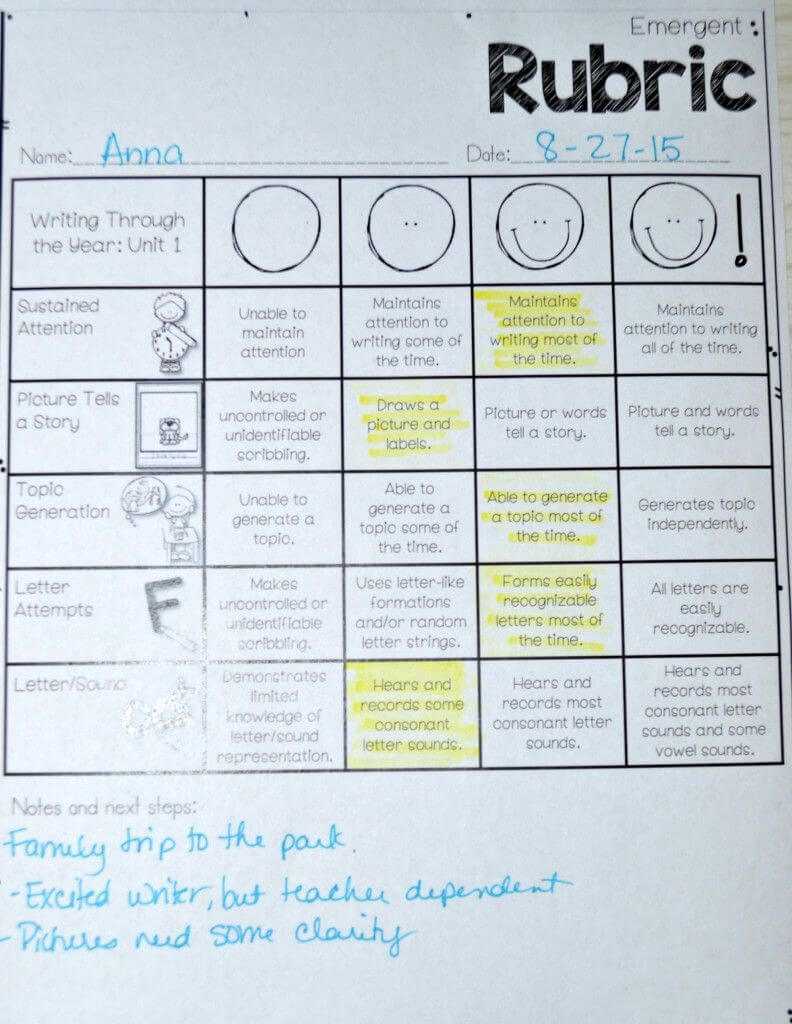 Emergent
Rubric
Name: Anna
Date: 8-27-15
Writing Through
the Year: Unit 1
!
Sustained
Attention
Unable to
maintain
attention
Maintains
attention to
writing some of
the time.
Maintains
attention to
writing most of
the time.
Maintains
attention to writing
all of the time.
Picture Tells
a Story
Makes
uncontrolled or
unidentifiable
scribbling.
Draws a
picture and
labels.
Picture or words
tell a story.
Picture and words
tell a story.
Topic
Generation
Unable to
generate a
topic.
Able to
generate a
topic some of
the time.
Able to generate
a topic most of
the time.
Generates topic
independently.
Letter
Attempts
F
Makes
uncontrolled or
unidentifiable
scribbling.
Uses letter-like
formations
and/or random
letter strings.
Forms easily
recognizable
letters most of
the time.
All letters are
easily
recognizable.
Letter/Sound
Demonstrates
limited
knowledge of
letter/sound
representation.
Hears and
records some
consonant
letter sounds.
Hears and
records most
consonant letter
sounds.
Hears and
records most
consonant letter
sounds and some
vowel sounds.
Notes and next steps:
Family trip to the park.
- Excited writer, but teacher dependent
- Pictures need some clarity